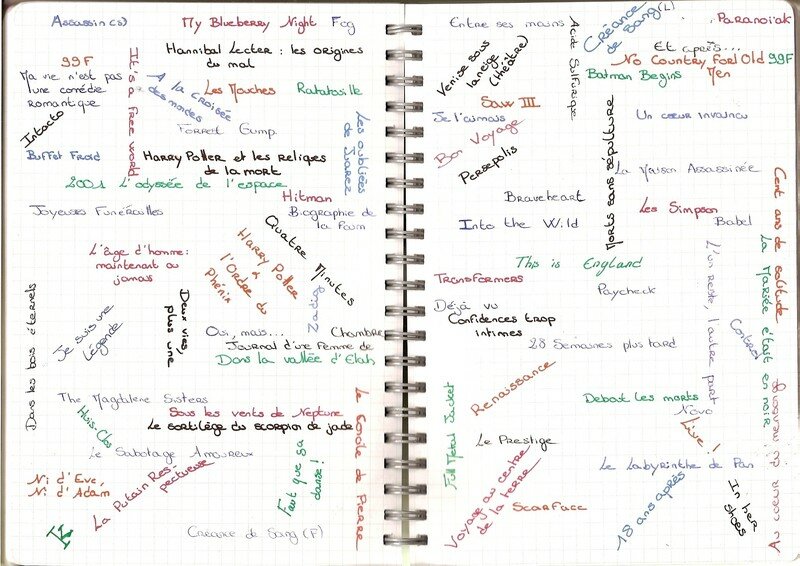 Assassin(s)
My Blueberry Night
Fcg
99F
It's a free world
Hannibal Lecter : les origines
du mal
Ma vie n'est pas
une comédie
romantique
A la croisée
des mondes
Les Mouches
Ratatouille
Intacto
Forrest Gump
Les oubliées
de Juarez
Buffet Froid
Harry Potter et les reliques
de la mort
2001 L'odyssée de l'espace
Hitman
Joyeuses Funérailles
Biographie de
la faim
Quatre Minutes
L'âge d'homme:
maintenant ou
jamais
Harry Potter
&
l'Ordre du
Phénix
Zadig
Dans les bois éternels
Je suis une
Légende
Deux vies,
plus une
Oui, mais...
Chambre
Journal d'une Femme de
Dans la vallée d'Elah
The Magdalene Sisters
Huis-Clos
Sous les vents de Neptune
Le sortilège du scorpion de jade
Le Sabotage Amoureux
Le Gonole de Pierre
Ni d'Eve,
Ni d'Adam
La Putain Res-
pectueuse
Faut que ça
danse!
K
Créance de Sang (F)
Entre ses mains
Acide Sulfurique
Créance
de Sang (L)
Paranoiak
Venise sous
la neige
(théâtre)
Et après...
No Country For Old
Men
99F
Batman Begins
Saw III
Je l'aimais
Morts sans sépulture
Un coeur invaincu
Bon Voyage
Persepolis
La Maison Assassinée
Braveheart
Les Simpson
Into the Wild
Babel
Cent ans de solitude
La Mariée était en noir
This is England
L'un reste, l'autre part
Transformers
Paycheck
Déjà vu
Confidences trop
intimes
Control
28 Semaines plus tard
Renaissance
Full Metal Jacket
Debout les morts
Novo
Live!
Le Prestige
Le Labyrinthe de Pan
Voyage au centre
de la terre
Scarface
18 ans après
In her
shoes
Au coeur du mensonge